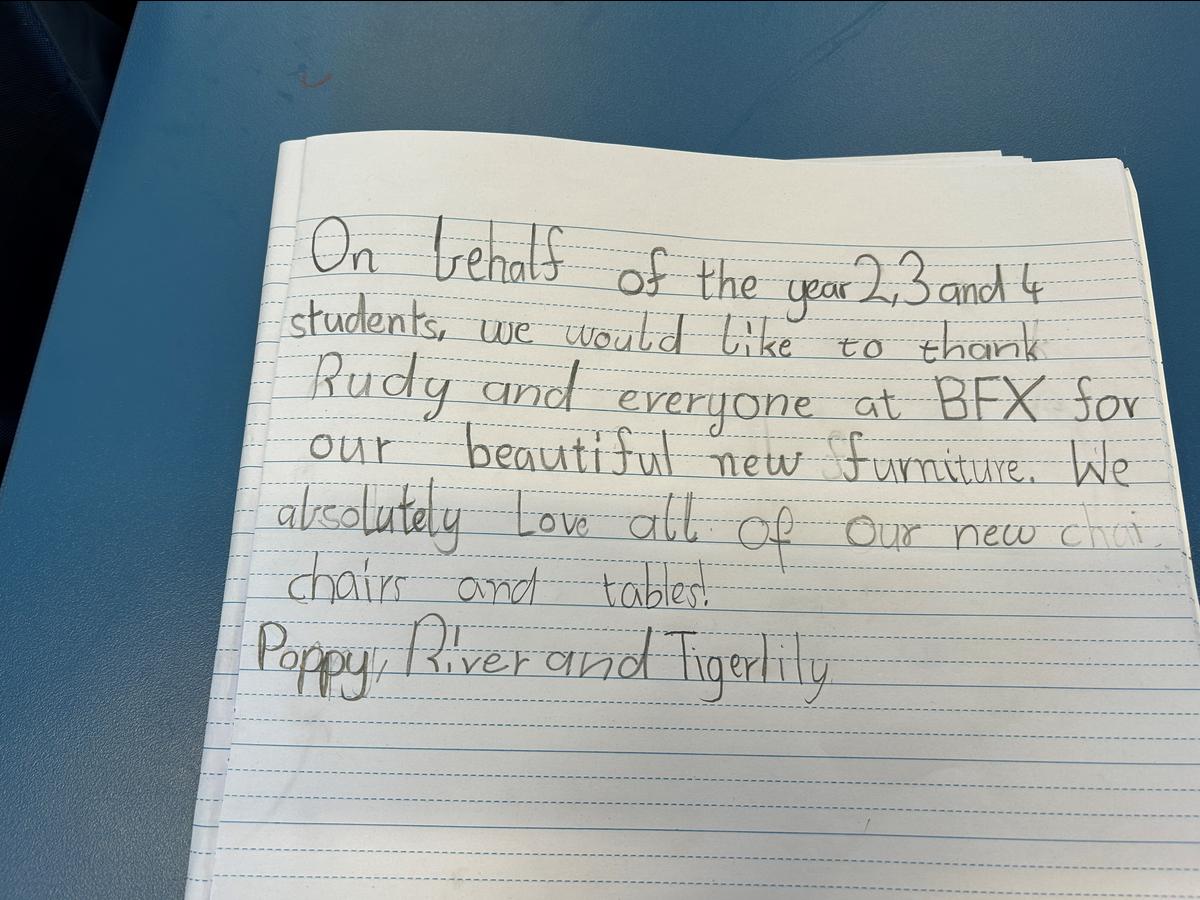 On behalf of the year 2,3 and 4
students, we would like to thank
Rudy and everyone at BFX for
our beautiful new furniture. We
absolutely Love all of our new chai
chairs and tables!
Poppy, River and Tigerlily